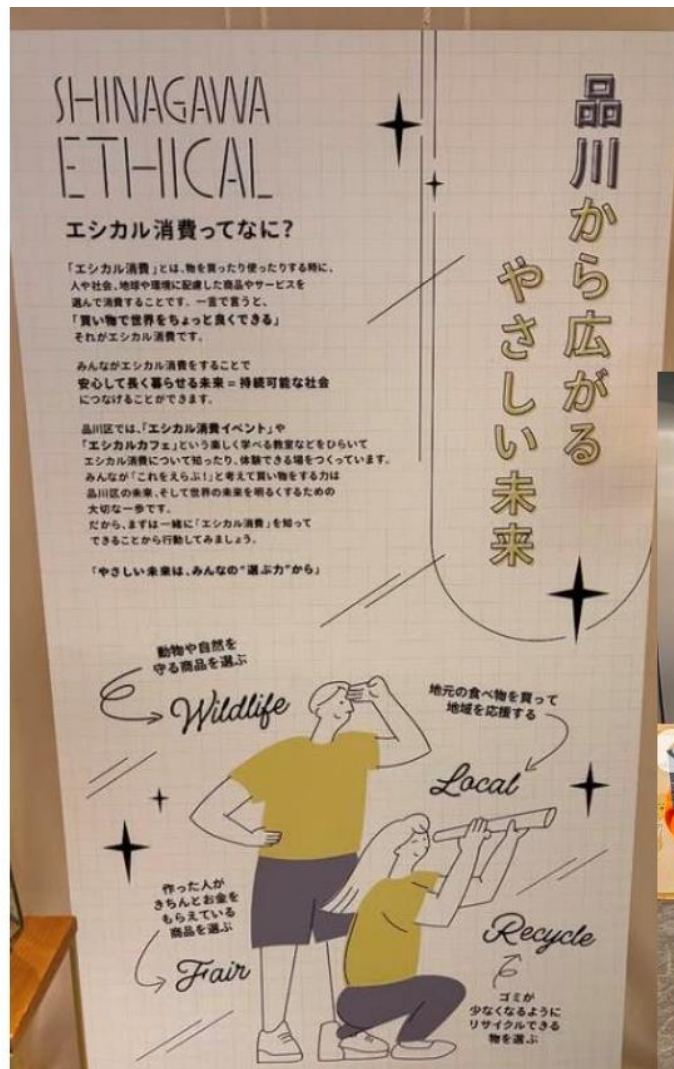 SHINAGAWA
ETHICAL
品川から広がる
やさしい未来
エシカル消費ってなに?
「エシカル消費」とは、物を買ったり使ったりする時に、
人や社会、地球や環境に配慮した商品やサービスを
選んで消費することです。一言で言うと、
「買い物で世界をちょっと良くできる」
それがエシカル消費です。
みんながエシカル消費をすることで
安心して長く暮らせる未来=持続可能な社会
につなげることができます。
品川区では、「エシカル消費イベント」や
「エシカルカフェ」という楽しく学べる教室などをひらいて
エシカル消費について知ったり、体験できる場をつくっています。
みんなが「これをえらぶ!」と考えて買い物をする力は
品川区の未来、そして世界の未来を明るくするための
大切な一歩です。
だから、まずは一緒に「エシカル消費」を知って
できることから行動してみましょう。
「やさしい未来は、みんなの“選ぶ力”から」
動物や自然を
守る商品を選ぶ
Wildlife
地元の食べ物を買って
地域を応援する
Local
作った人が
きちんとお金を
もらえている
商品を選ぶ
Fair
Recycle
ゴミが
少なくなるように
リサイクルできる
物を選ぶ